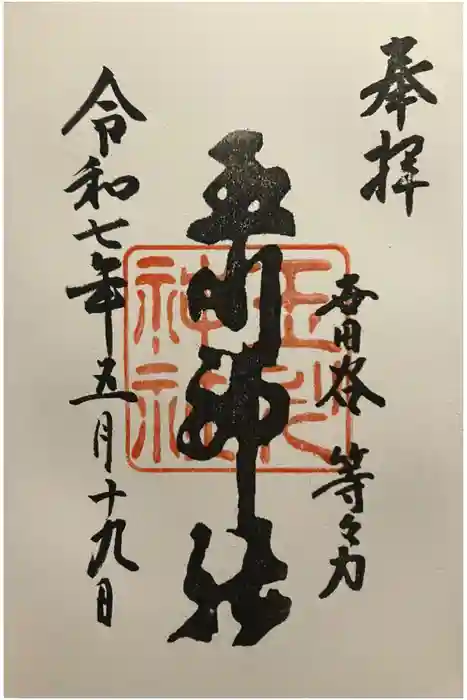 奉拝
世田谷 等々力
玉川神社
玉川
神社
令和七年五月十九日